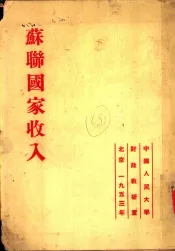 蘇聯國家收入
中國人民大學
財政教研室
北京 一九五三年